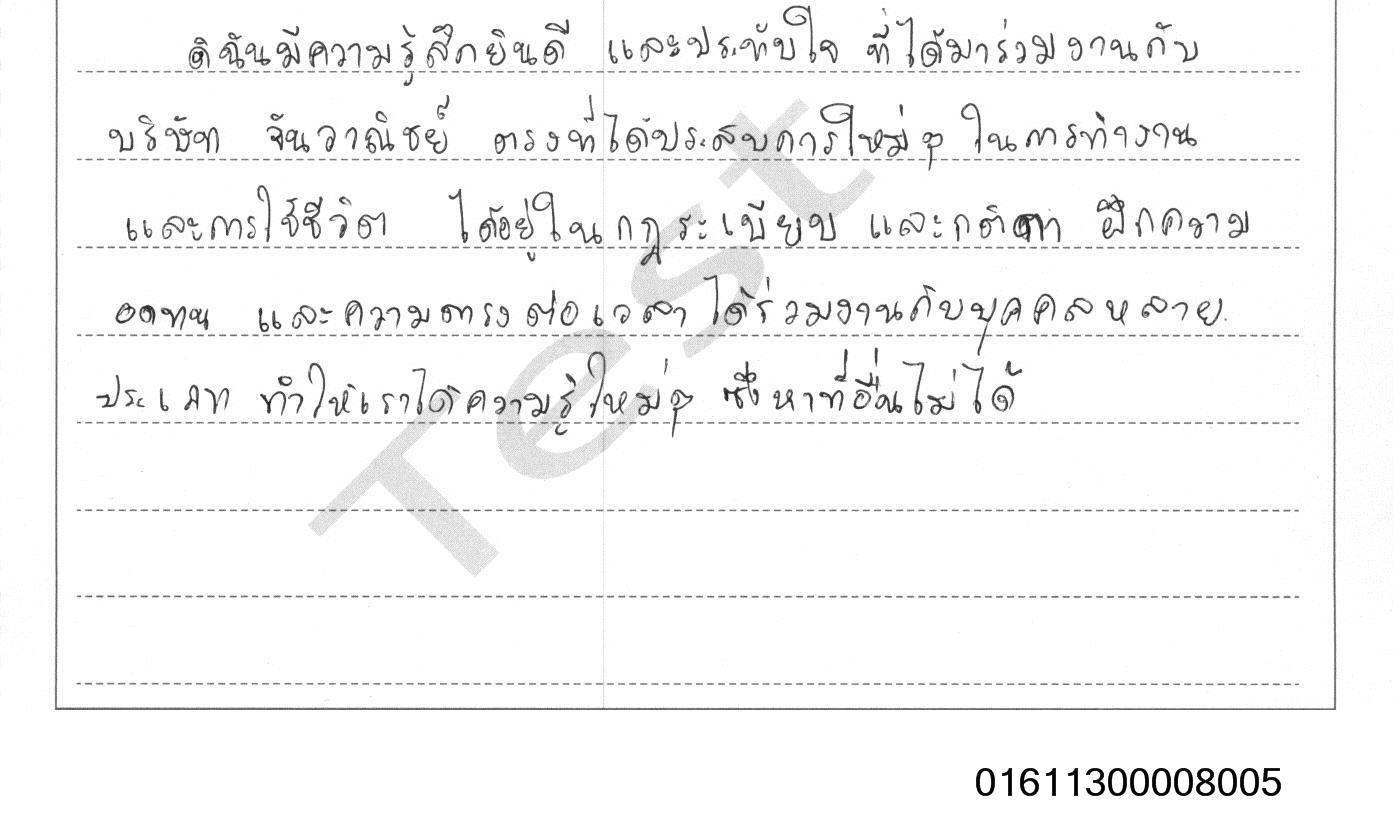 ดิฉันมีความรู้สึกยินดี และประทับใจ ที่ได้มาร่วมงานกับ
บริษัท จันวาณิชย์ ตรงที่ได้ประสบการใหม่ๆ ในการทำงาน
และการใช้ชีวิต ได้อยู่ในกฎระเบียบ และกติกา ฝึกความ
อดทน และความตรงต่อเวลา ได้ร่วมงานกับบุคคลหลาย
ประเภท ทำให้เราได้ความรู้ใหม่ๆ ซึ่งหาที่อื่นไม่ได้
Test
01611300008005